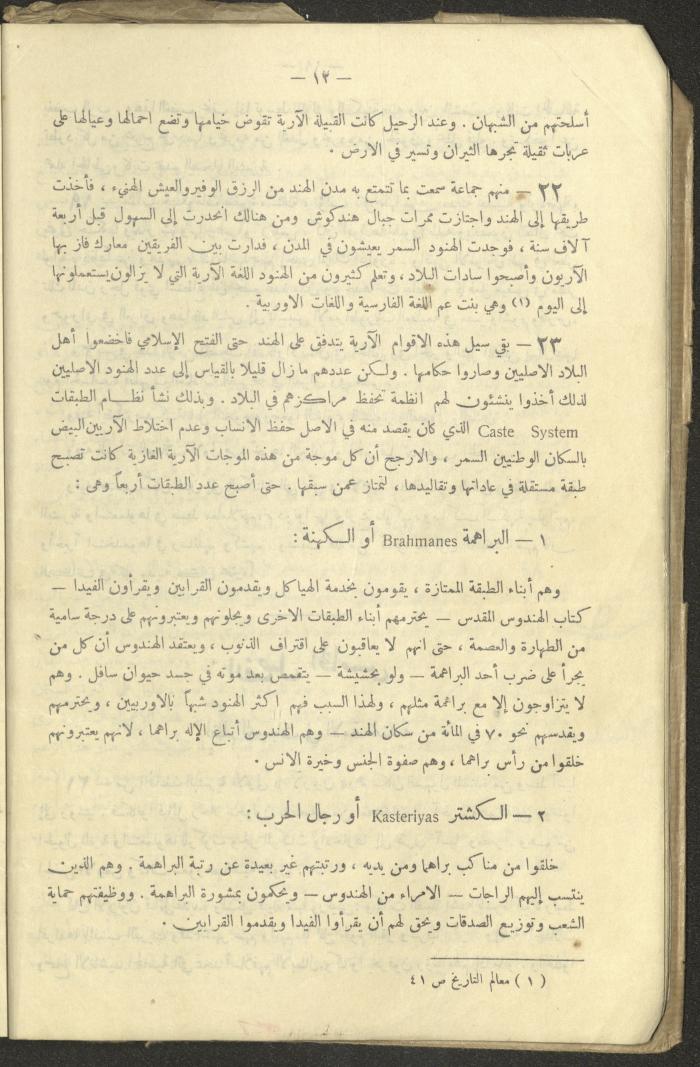 — ١٢ —
أسلحتهم من الشبهان . وعند الرحيل كانت القبيلة الآرية تقوض خيامها وتضع احمالها وعيالها على
عربات ثقيلة تجرها الثيران وتسير في الارض .
٢٢ — منهم جماعة سمعت بما تتمتع به مدن الهند من الرزق الوفير والعيش الهنيء ، فأخذت
طريقها إلى الهند واجتازت ممرات جبال هندكوش ومن هنالك انحدرت إلى السهول قبل أربعة
آلاف سنة ، فوجدت الهنود السمر يعيشون في المدن ، فدارت بين الفريقين معارك فاز بها
الآريون وأصبحوا سادات البلاد ، وتعلم كثيرون من الهنود اللغة الآرية التي لا يزالون يستعملونها
إلى اليوم (١) وهي بنت عم اللغة الفارسية واللغات الاوربية .
٢٣ — بقي سيل هذه الاقوام الآرية يتدفق على الهند حتى الفتح الإسلامي فاخضعوا أهل
البلاد الاصليين وصاروا حكامها . ولكن عددهم ما زال قليلا بالقياس إلى عدد الهنود الاصليين
لذلك أخذوا ينشئون لهم انظمة تحفظ مراكزهم في البلاد . وبذلك نشأ نظام الطبقات
Caste System الذي كان يقصد منه في الاصل حفظ الانساب وعدم اختلاط الآريين البيض
بالسكان الوطنيين السمر ، والارجح أن كل موجة من هذه الموجات الآرية الغازية كانت تصبح
طبقة مستقلة في عاداتها وتقاليدها ، لتمتاز عمن سبقها . حتى أصبح عدد الطبقات أربعاً وهى :
١ — البراهمة Brahmanes أو الكهنة :
وهم أبناء الطبقة الممتازة ، يقومون بخدمة الهياكل ويقدمون القرابين ويقرأون الفيدا —
كتاب الهندوس المقدس — يحترمهم أبناء الطبقات الاخرى ويجلونهم ويعتبرونهم على درجة سامية
من الطهارة والعصمة ، حتى انهم لا يعاقبون على اقتراف الذنوب ، ويعتقد الهندوس أن كل من
يجرأ على ضرب أحد البراهمة — ولو بحشيشة — يتقمص بعد موته في جسد حيوان سافل . وهم
لا يتزاوجون إلا مع براهمة مثلهم ، ولهذا السبب فهم اكثر الهنود شبهاً بالاوربيين ، ويحترمهم
ويقدسهم نحو ٧٠ في المائة من سكان الهند — وهم الهندوس أتباع الإله براهما ، لانهم يعتبرونهم
خلقوا من رأس براهما ، وهم صفوة الجنس وخيرة الانس .
٢ — الكشتر Kasteriyas أو رجال الحرب :
خلقوا من مناكب براهما ومن يديه ، ورتبتهم غير بعيدة عن رتبة البراهمة . وهم الذين
ينتسب إليهم الراجات — الامراء من الهندوس — ويحكمون بمشورة البراهمة . ووظيفتهم حماية
الشعب وتوزيع الصدقات ويحق لهم أن يقرأوا الفيدا ويقدموا القرابين .
( ١ ) معالم التاريخ ص ٤١